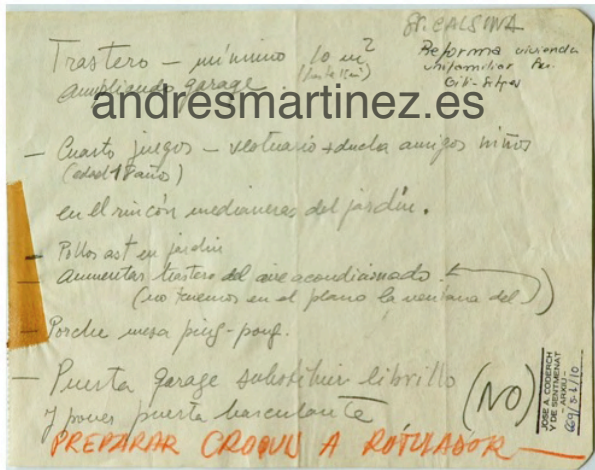 Sr. CALSINA
Reforma vivienda
unifamiliar
Trastero — mínimo 10 m²
ampliando garage.
andresmartinez.es
— Cuarto juegos — vestuario + ducha amigos niños
(edad 18 año)
en el rincón medianeras del jardín.
— en jardín
— Aumentar trastero del aire acondicionado.
(no tenemos en el plano la ventana del)
— Porche mesa ping-pong.
— Puerta garage substituir librillo (NO)
y poner puerta basculante
PREPARAR CROQUIS A ROTULADOR —
JOSE A. CODERCH
Y DE SENTMENAT
- ARXIU -